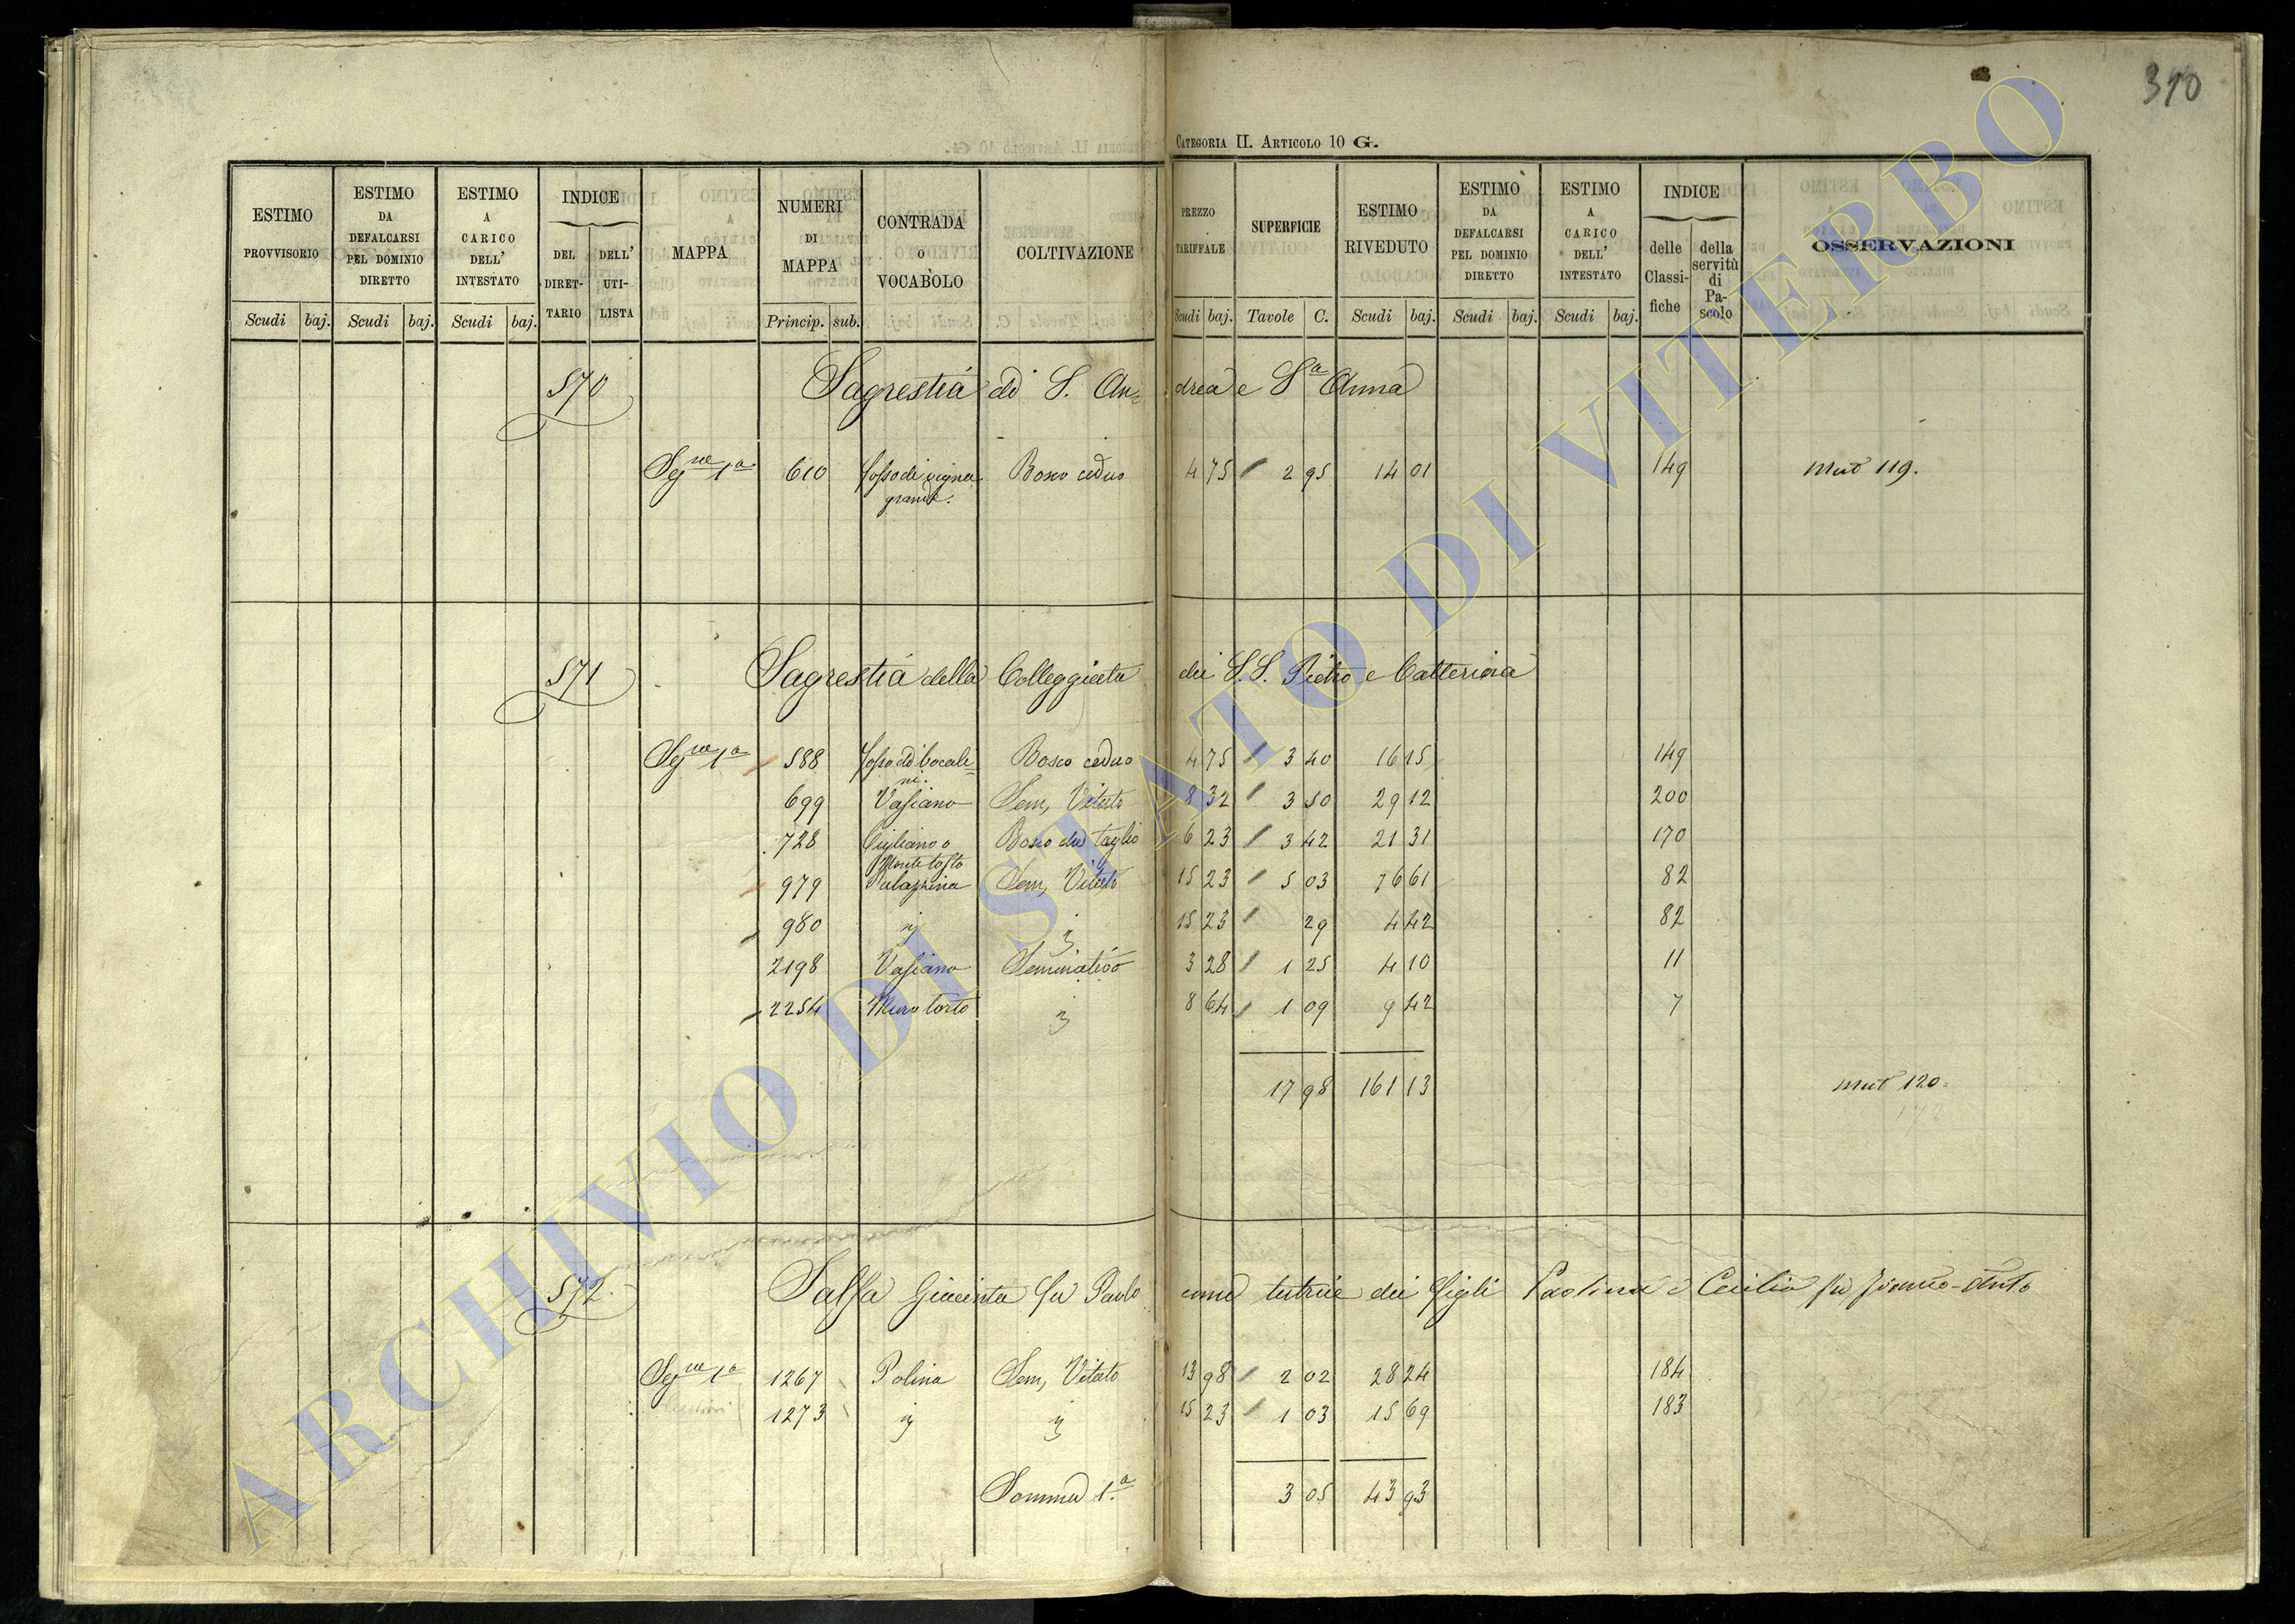 310
CATEGORIA II. ARTICOLO 10 G.
ESTIMO PROVVISORIO
ESTIMO DA DEFALCARSI PEL DOMINIO DIRETTO
ESTIMO A CARICO DELL' INTESTATO
INDICE
DEL DIRET-TARIO
DELL' UTI-LISTA
MAPPA
NUMERI DI MAPPA
CONTRADA O VOCABOLO
COLTIVAZIONE
PREZZO TARIFFALE
SUPERFICIE
ESTIMO RIVEDUTO
ESTIMO DA DEFALCARSI PEL DOMINIO DIRETTO
ESTIMO A CARICO DELL' INTESTATO
INDICE
delle Classi-fiche
della servitù di Pa-scolo
OSSERVAZIONI
Scudi baj. Scudi baj. Scudi baj. Princip. sub. Scudi baj. Tavole C. Scudi baj. Scudi baj. Scudi baj.
570 Sagrestia di S. An=drea e Sa Anna
Sezne 1a 610 fosso di vigna grande. Bosco ceduo 4 75 2 95 14 01 149 Mut 119.
571 Sagrestia della Colleggiata dei S.S. Pietro e Catterina
Sezne 1a 588 fosso di bocale=ni. Bosco ceduo 4 75 3 40 16 15 149
699 Vasiano Sem, Vitato 8 32 3 50 29 12 200
728 Gigliano o Monte tosto Bosco da taglio 6 23 3 42 21 31 170
979 Palazzina Sem, Vitato 15 23 5 03 76 61 82
980 15 23 29 4 42 82
2198 Vasiano Seminativo 3 28 1 25 4 10 11
2254 Muro torto 8 64 1 09 9 42 7
17 98 161 13 Mut 120=
172
572. Salsa Giacinta fu Paolo come tutrice dei figli Paolina e Cecilia fu
Sezne 1a 1267 Polina Sem, Vitato 13 98 2 02 28 24 184
1273 15 23 1 03 15 69 183
Somma 1.a 3 05 43 93
ARCHIVIO DI STATO DI VITERBO